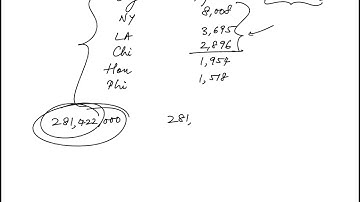 NY 8,008
LA 3,695
Chi 2,896
Hou 1,954
Phi 1,518
281,422,000 281,